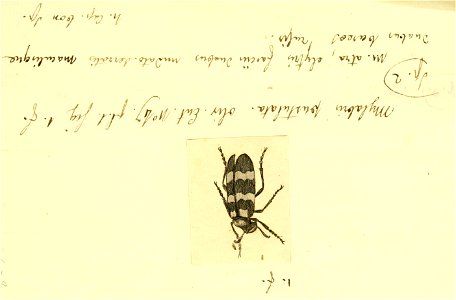 1. f.
Mylabris pustulata. oliv. Ent. no 47. pl. 1 fig. 1. f.
Sp. 2
M. atra, elytris fasciis duabus undato-serratis maculisque
duabus baseos rufis.
h. Cap. bon Sp.